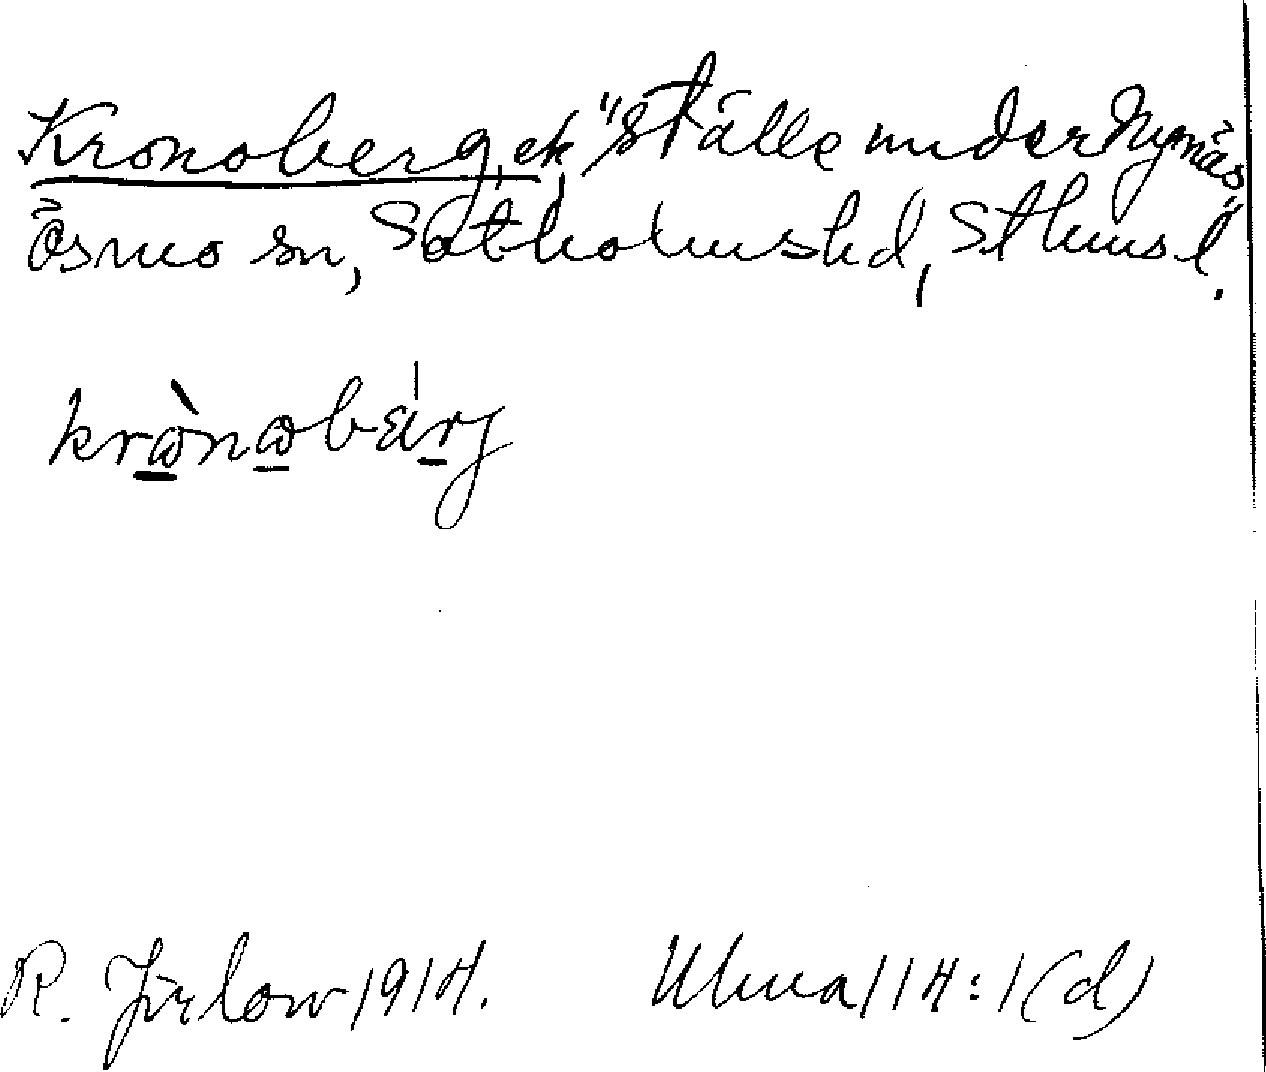 Kronoberg, ek, "ställe under Nynäs,"
Ösmo sn, Sotholms hd, Sthms l.
krònobǽrj
R. Jirlow 1914. Ulma 114:1(d)